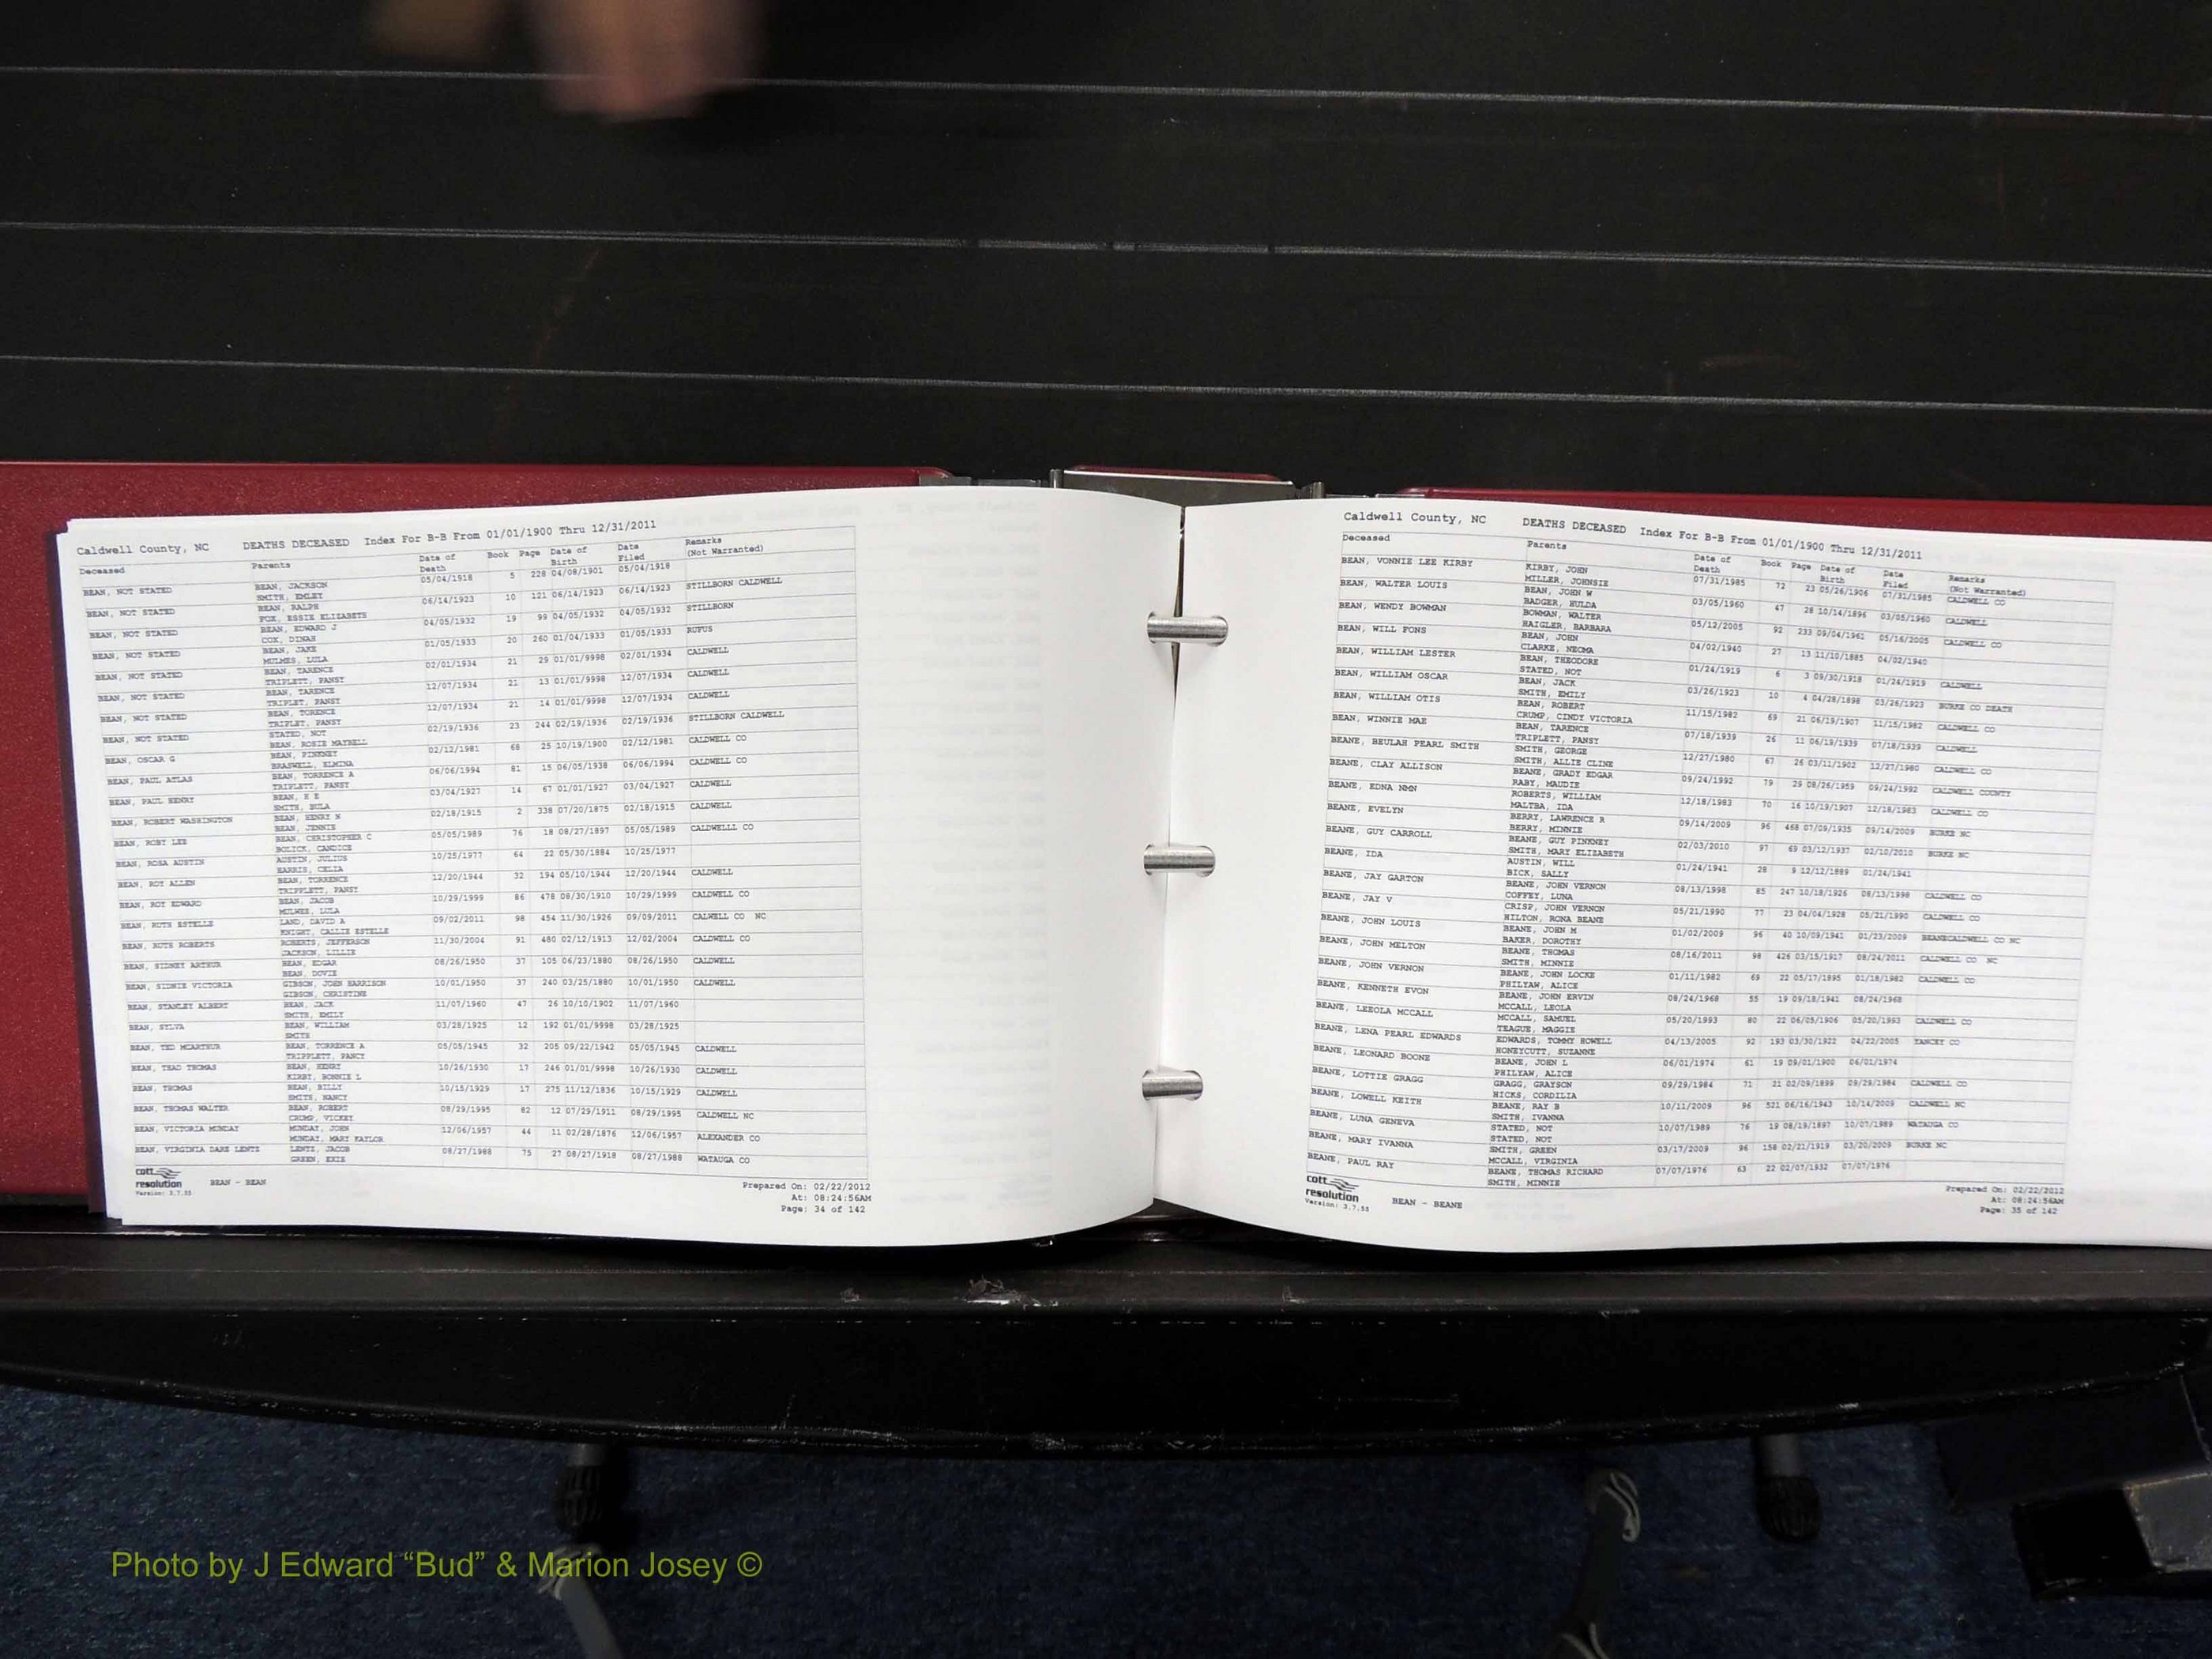 Caldwell County, NC DEATHS DECEASED Index For B-B From 01/01/1900 Thru 12/31/2011
Deceased Parents Date of Death Book Page Date of Birth Date Filed Remarks (Not Warranted)
BEAN, NOT STATED BEAN, JACKSON 05/04/1918 5 228 04/08/1901 05/04/1918
SMITH, EMLEY
BEAN, NOT STATED BEAN, RALPH 06/14/1923 10 121 06/14/1923 06/14/1923 STILLBORN CALDWELL
FOX, ESSIE ELIZABETH
BEAN, NOT STATED BEAN, EDWARD J 04/05/1932 19 99 04/05/1932 04/05/1932 STILLBORN
COX, DINAH
BEAN, NOT STATED BEAN, JAKE 01/05/1933 20 260 01/04/1933 01/05/1933 RUFUS
MULMES, LULA
BEAN, NOT STATED BEAN, TARENCE 02/01/1934 21 29 01/01/9998 02/01/1934 CALDWELL
TRIPLETT, PANSY
BEAN, NOT STATED BEAN, TARENCE 12/07/1934 21 13 01/01/9998 12/07/1934 CALDWELL
TRIPLET, PANSY
BEAN, NOT STATED BEAN, TORENCE 12/07/1934 21 14 01/01/9998 12/07/1934 CALDWELL
TRIPLET, PANSY
BEAN, NOT STATED STATED, NOT 02/19/1936 23 244 02/19/1936 02/19/1936 STILLBORN CALDWELL
BEAN, ROSIE MAYBELL
BEAN, OSCAR G BEAN, PINKNEY 02/12/1981 68 25 10/19/1900 02/12/1981 CALDWELL CO
BRASWELL, ELMINA
BEAN, PAUL ATLAS BEAN, TORRENCE A 06/06/1994 81 15 06/05/1938 06/06/1994 CALDWELL CO
TRIPLETT, PANSY
BEAN, PAUL HENRY BEAN, H E 03/04/1927 14 67 01/01/1927 03/04/1927 CALDWELL
SMITH, BULA
BEAN, ROBERT WASHINGTON BEAN, HENRY N 02/18/1915 2 338 07/20/1875 02/18/1915 CALDWELL
BEAN, JENNIE
BEAN, ROBY LEE BEAN, CHRISTOPHER C 05/05/1989 76 18 08/27/1897 05/05/1989 CALDWELLL CO
BOLICK, CANDICE
BEAN, ROSA AUSTIN AUSTIN, JULIUS 10/25/1977 64 22 05/30/1884 10/25/1977
HARRIS, CELIA
BEAN, ROY ALLEN BEAN, TORRENCE 12/20/1944 32 194 05/10/1944 12/20/1944 CALDWELL
TRIPPLETT, PANSY
BEAN, ROY EDWARD BEAN, JACOB 10/29/1999 86 478 08/30/1910 10/29/1999 CALDWELL CO
MULWEE, LULA
BEAN, RUTH ESTELLE LAND, DAVID A 09/02/2011 98 454 11/30/1926 09/09/2011 CALWELL CO NC
KNIGHT, CALLIE ESTELLE
BEAN, RUTH ROBERTS ROBERTS, JEFFERSON 11/30/2004 91 480 02/12/1913 12/02/2004 CALDWELL CO
JACKSON, LILLIE
BEAN, SIDNEY ARTHUR BEAN, EDGAR 08/26/1950 37 105 06/23/1880 08/26/1950 CALDWELL
BEAN, DOVIE
BEAN, SIDNIE VICTORIA GIBSON, JOHN HARRISON 10/01/1950 37 240 03/25/1880 10/01/1950 CALDWELL
GIBSON, CHRISTINE
BEAN, STANLEY ALBERT BEAN, JACK 11/07/1960 47 26 10/10/1902 11/07/1960
SMITH, EMILY
BEAN, SYLVA BEAN, WILLIAM 03/28/1925 12 192 01/01/9998 03/28/1925
SMITH
BEAN, TED MCARTHUR BEAN, TORRENCE A 05/05/1945 32 205 09/22/1942 05/05/1945 CALDWELL
TRIPPLETT, PANCY
BEAN, THAD THOMAS BEAN, HENRY 10/26/1930 17 246 01/01/9998 10/26/1930 CALDWELL
KIRBY, BONNIE L
BEAN, THOMAS BEAN, BILLY 10/15/1929 17 275 11/12/1836 10/15/1929 CALDWELL
SMITH, NANCY
BEAN, THOMAS WALTER BEAN, ROBERT 08/29/1995 82 12 07/29/1911 08/29/1995 CALDWELL NC
CRUMP, VICKEY
BEAN, VICTORIA MUNDAY MUNDAY, JOHN 12/06/1957 44 11 02/28/1876 12/06/1957 ALEXANDER CO
MUNDAY, MARY KAYLOR
BEAN, VIRGINIA DARE LENTZ LENTZ, JACOB 08/27/1988 75 27 08/27/1918 08/27/1988 WATAUGA CO
GREEN, EXIE
cott
resolution BEAN - BEAN
Version: 3.7.55
Prepared On: 02/22/2012
At: 08:24:56AM
Page: 34 of 142
Caldwell County, NC DEATHS DECEASED Index For B-B From 01/01/1900 Thru 12/31/2011
Deceased Parents Date of Death Book Page Date of Birth Date Filed Remarks (Not Warranted)
BEAN, VONNIE LEE KIRBY KIRBY, JOHN 07/31/1985 72 23 05/26/1906 07/31/1985 CALDWELL CO
MILLER, JOHNSIE
BEAN, WALTER LOUIS BEAN, JOHN W 03/05/1960 47 28 10/14/1896 03/05/1960 CALDWELL
BADGER, HULDA
BEAN, WENDY BOWMAN BOWMAN, WALTER 05/12/2005 92 233 09/04/1961 05/16/2005 CALDWELL CO
HAIGLER, BARBARA
BEAN, WILL FONS BEAN, JOHN 04/02/1940 27 13 11/10/1885 04/02/1940
CLARKE, NEOMA
BEAN, WILLIAM LESTER BEAN, THEODORE 01/24/1919 6 3 09/30/1918 01/24/1919 CALDWELL
STATED, NOT
BEAN, WILLIAM OSCAR BEAN, JACK 03/26/1923 10 4 04/28/1898 03/26/1923 BURKE CO DEATH
SMITH, EMILY
BEAN, WILLIAM OTIS BEAN, ROBERT 11/15/1982 69 21 06/19/1907 11/15/1982 CALDWELL CO
CRUMP, CINDY VICTORIA
BEAN, WINNIE MAE BEAN, TARENCE 07/18/1939 26 11 06/19/1939 07/18/1939 CALDWELL
TRIPLETT, PANSY
BEANE, BEULAH PEARL SMITH SMITH, GEORGE 12/27/1980 67 26 03/11/1902 12/27/1980 CALDWELL CO
SMITH, ALLIE CLINE
BEANE, CLAY ALLISON BEANE, GRADY EDGAR 09/24/1992 79 29 08/26/1959 09/24/1992 CALDWELL COUNTY
RABY, MAUDIE
BEANE, EDNA NMN ROBERTS, WILLIAM 12/18/1983 70 16 10/19/1907 12/18/1983 CALDWELL CO
MALTBA, IDA
BEANE, EVELYN BERRY, LAWRENCE R 09/14/2009 96 468 07/09/1935 09/14/2009 BURKE NC
BERRY, MINNIE
BEANE, GUY CARROLL BEANE, GUY PINKNEY 02/03/2010 97 69 03/12/1937 02/10/2010 BURKE NC
SMITH, MARY ELIZABETH
BEANE, IDA AUSTIN, WILL 01/24/1941 28 9 12/12/1889 01/24/1941
BICK, SALLY
BEANE, JAY GARTON BEANE, JOHN VERNON 08/13/1998 85 247 10/18/1926 08/13/1998 CALDWELL CO
COFFEY, LUNA
BEANE, JAY V CRISP, JOHN VERNON 05/21/1990 77 23 04/04/1928 05/21/1990 CALDWELL CO
HILTON, RONA BEANE
BEANE, JOHN LOUIS BEANE, JOHN M 01/02/2009 96 40 10/09/1941 01/23/2009 BEANECALDWELL CO NC
BAKER, DOROTHY
BEANE, JOHN MELTON BEANE, THOMAS 08/16/2011 98 426 03/15/1917 08/24/2011 CALDWELL CO NC
SMITH, MINNIE
BEANE, JOHN VERNON BEANE, JOHN LOCKE 01/11/1982 69 22 05/17/1895 01/18/1982 CALDWELL CO
PHILYAW, ALICE
BEANE, KENNETH EVON BEANE, JOHN ERVIN 08/24/1968 55 19 09/18/1941 08/24/1968
MCCALL, LEOLA
BEANE, LEEOLA MCCALL MCCALL, SAMUEL 05/20/1993 80 22 06/05/1906 05/20/1993 CALDWELL CO
TEAGUE, MAGGIE
BEANE, LENA PEARL EDWARDS EDWARDS, TOMMY HOWELL 04/13/2005 92 193 03/30/1922 04/22/2005 YANCEY CO
HONEYCUTT, SUZANNE
BEANE, LEONARD BOONE BEANE, JOHN L 06/01/1974 61 19 09/01/1900 06/01/1974
PHILYAW, ALICE
BEANE, LOTTIE GRAGG GRAGG, GRAYSON 09/29/1984 71 21 02/09/1899 09/29/1984 CALDWELL CO
HICKS, CORDILIA
BEANE, LOWELL KEITH BEANE, RAY B 10/11/2009 96 521 06/16/1943 10/14/2009 CALDWELL NC
SMITH, IVANNA
BEANE, LUNA GENEVA STATED, NOT 10/07/1989 76 19 08/19/1897 10/07/1989 WATAUGA CO
STATED, NOT
BEANE, MARY IVANNA SMITH, GREEN 03/17/2009 96 158 02/21/1919 03/20/2009 BURKE NC
MCCALL, VIRGINIA
BEANE, PAUL RAY BEANE, THOMAS RICHARD 07/07/1976 63 22 02/07/1932 07/07/1976
SMITH, MINNIE
cott
resolution BEAN - BEANE
Version: 3.7.55
Prepared On: 02/22/2012
At: 08:24:56AM
Page: 35 of 142
Photo by J Edward “Bud” & Marion Josey ©